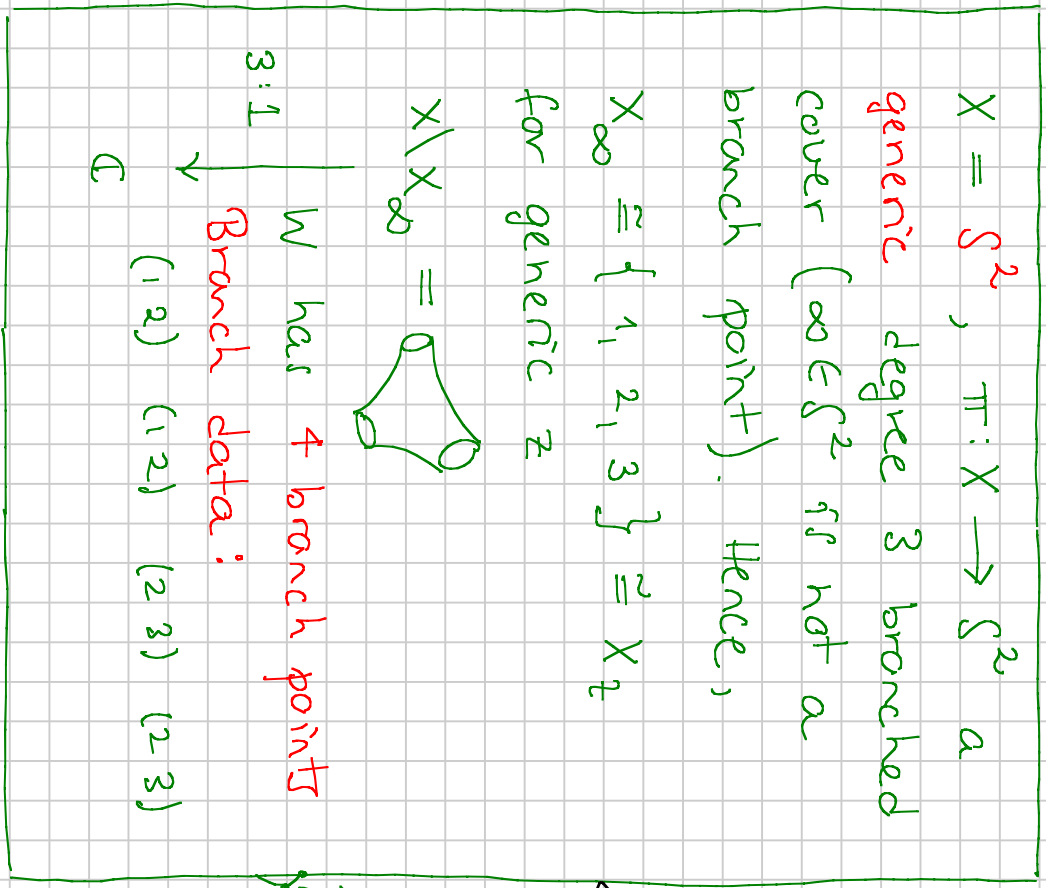 X = S², π: X → S² a
generic degree 3 branched
cover (∞ ∈ S² is not a
branch point). Hence,
X∞ ≅ {1, 2, 3} ≅ Xz
for generic z
X\X∞ =
3:1 W has 4 branch points
Branch data:
ℂ (12) (12) (23) (23)